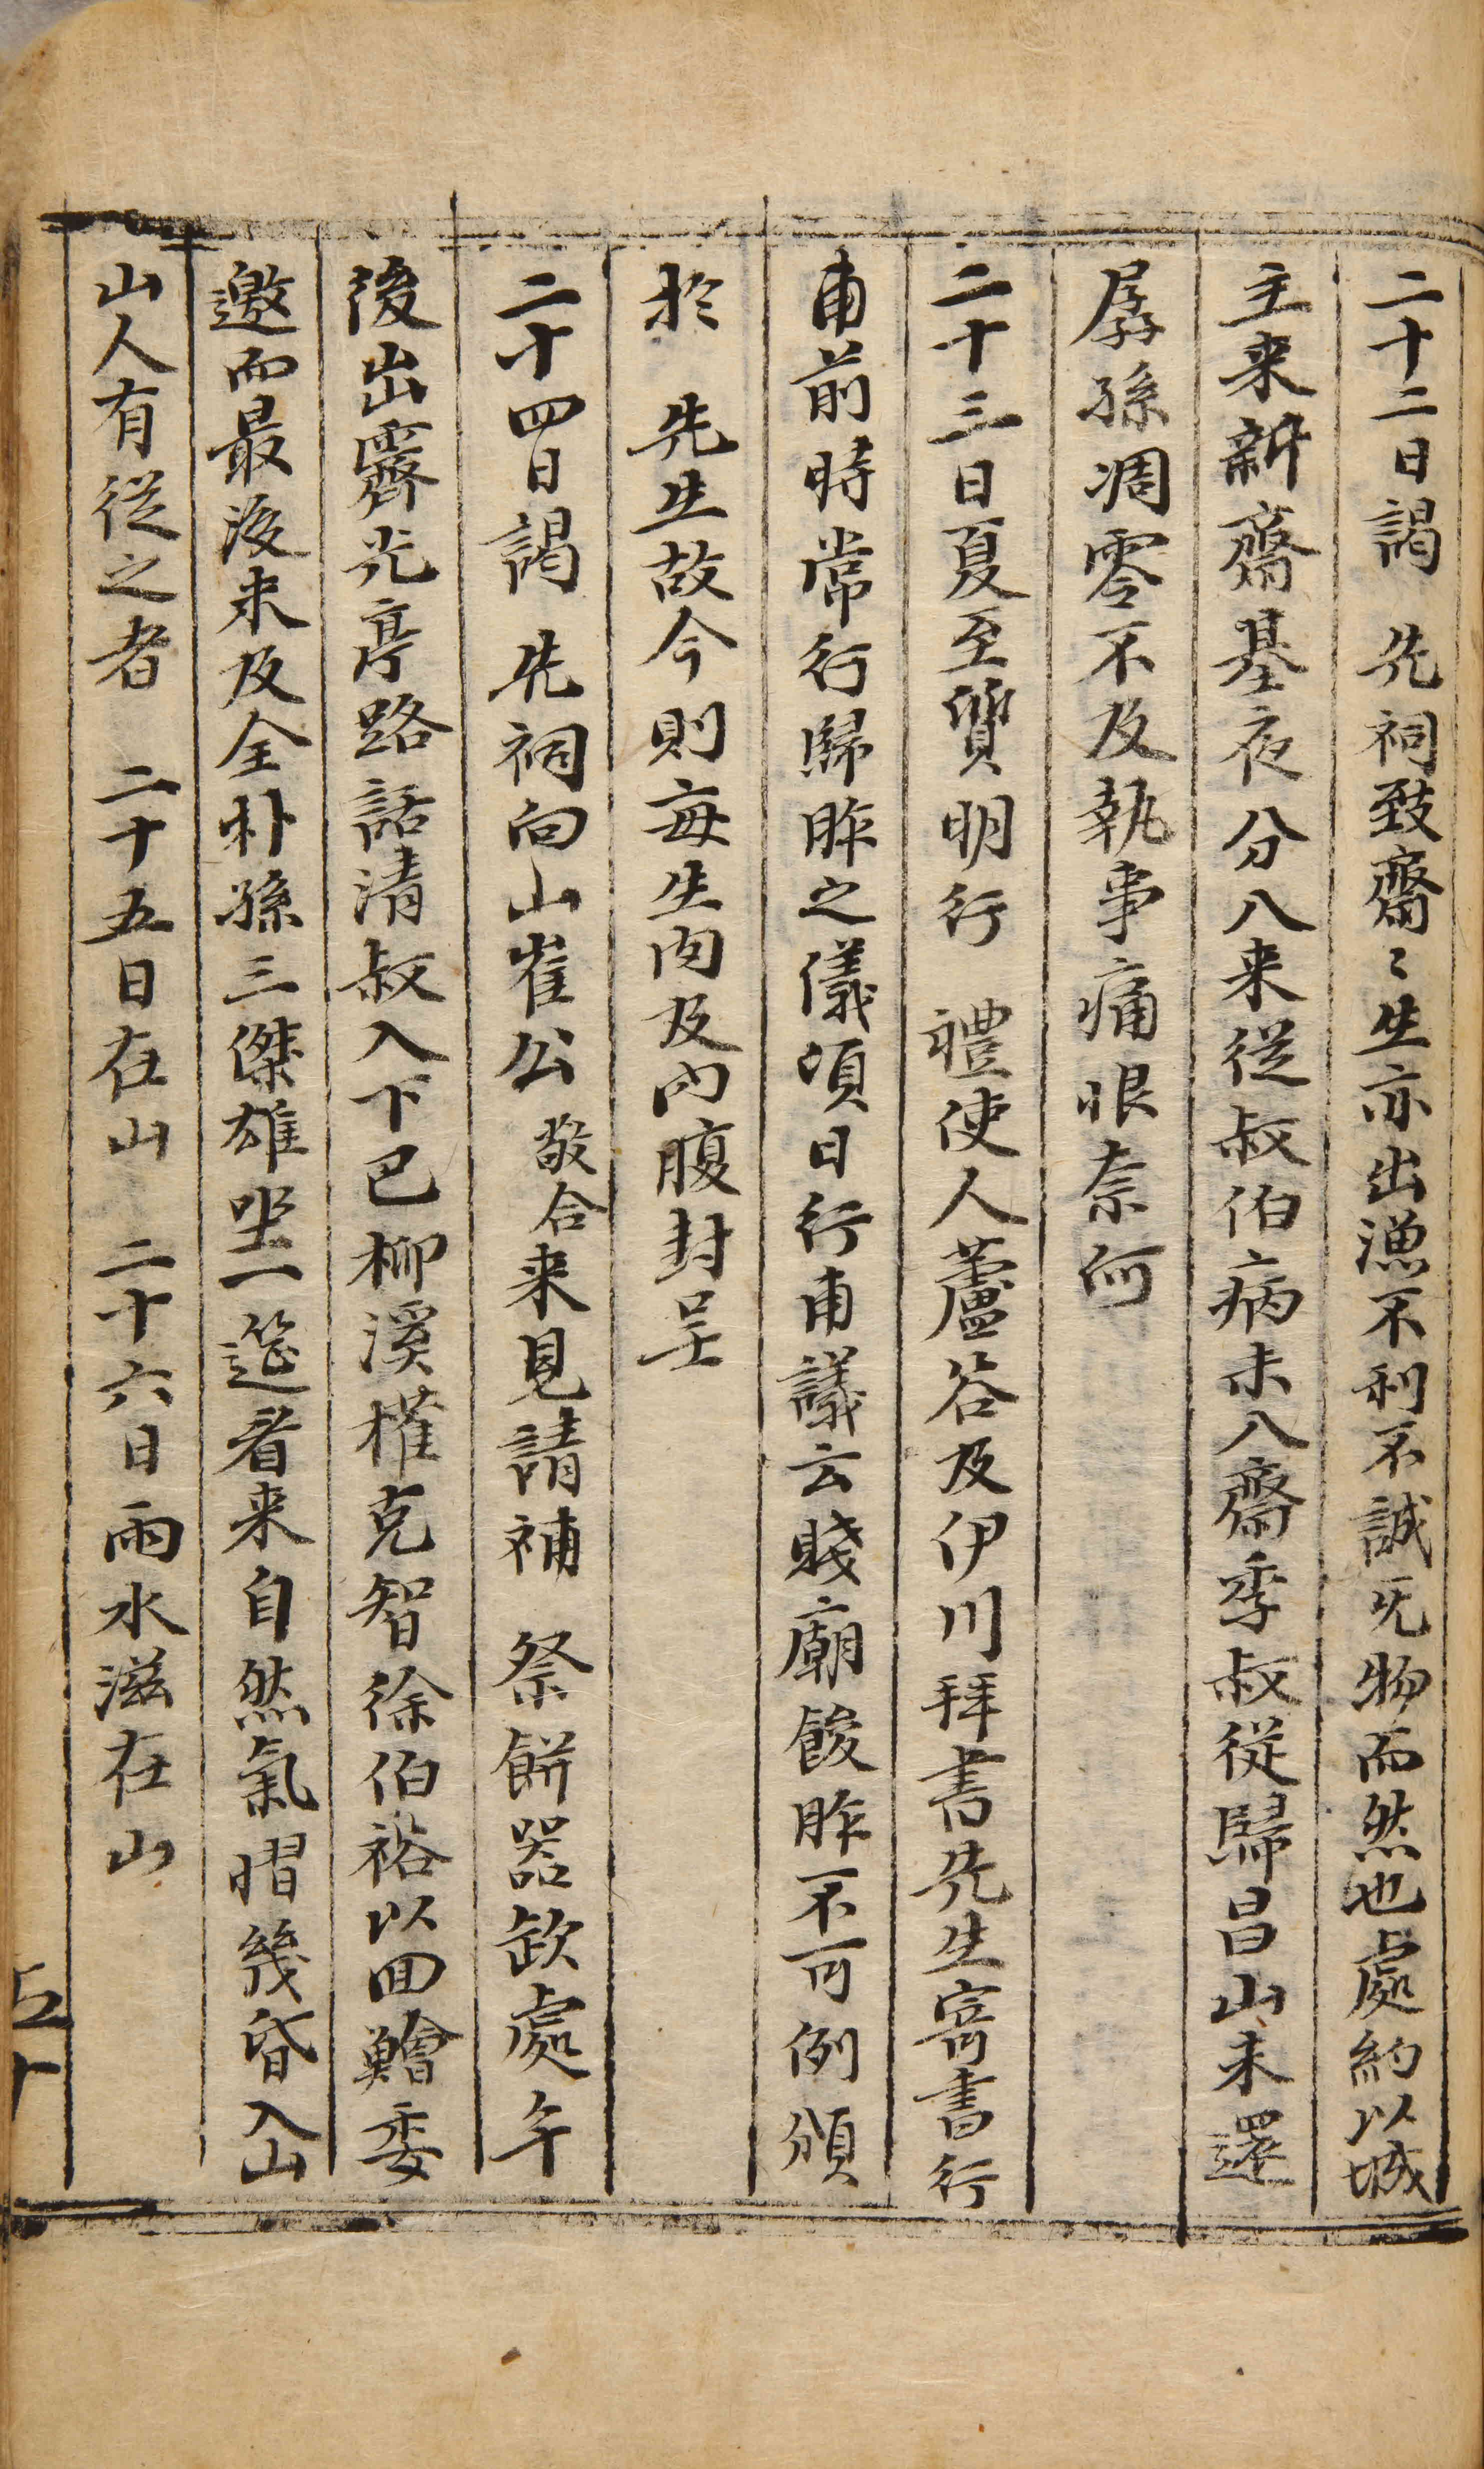 二十二日謁　先祠致齋〻生亦出漁不利不誠旡物而然也處約以城
主来新齋基夜分八来從叔伯病未入齋季叔從歸昌山未還
孱孫凋零不及執事痛恨奈何
二十三日夏至質明行　禮使人蘆谷及伊川拜書先生寄書行
甫前時常行歸胙之儀頃日行甫議云賤廟餕胙不可例頒
於　先生故今則每生肉及內腹封呈
二十四日謁　先祠向山崔公敬合来見請補　祭餠器欽處午
後出霽光亭路話清叔入下巴柳溪權克智徐伯裕以回鱠委
邀而最後来及全朴孫三傑雄坐一筵着来自然氣㬪幾昏入山
山人有從之者　二十五日在山　二十六日雨水滋在山